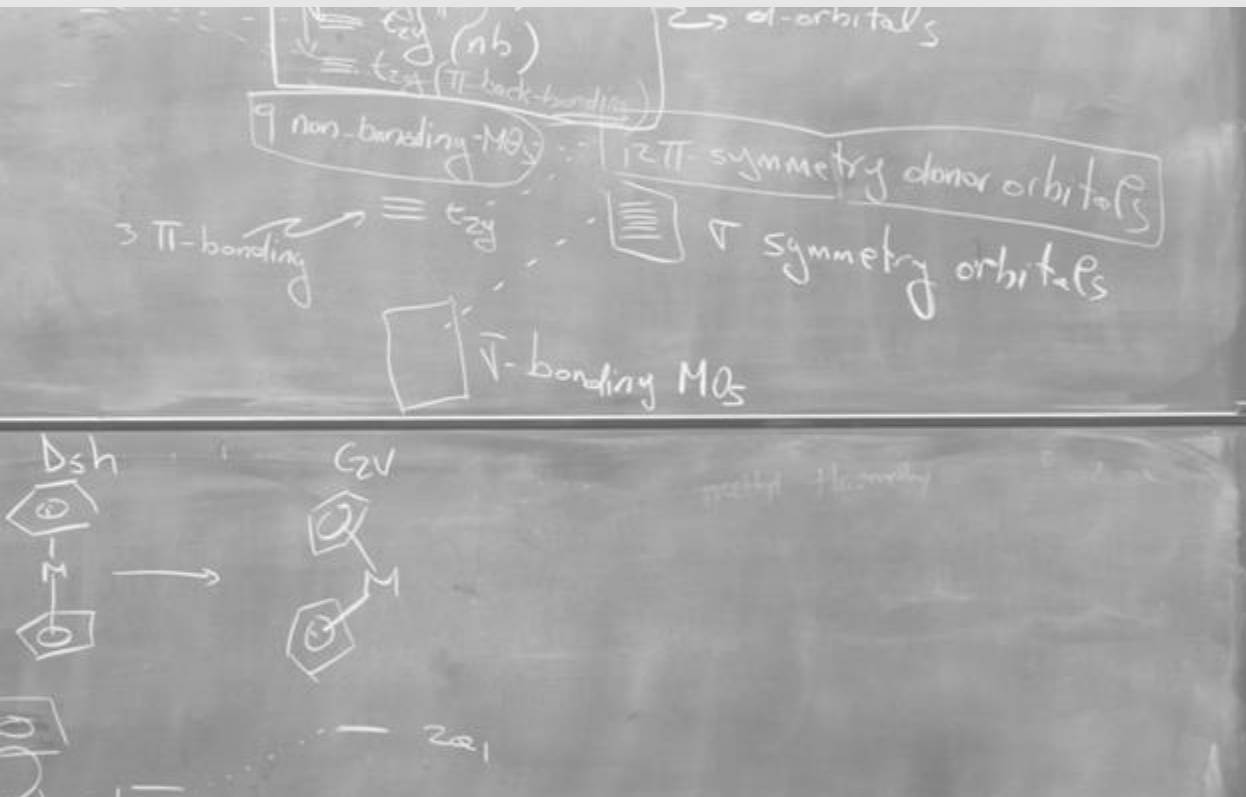 d-orbitals
t2g (nb)
t2g (π-back-bonding)
9 non-bonding-MOs
12 π-symmetry donor orbitals
t2g
3 π-bonding
σ symmetry orbitals
σ-bonding MOs
D5h
C2v
M
M
2a1